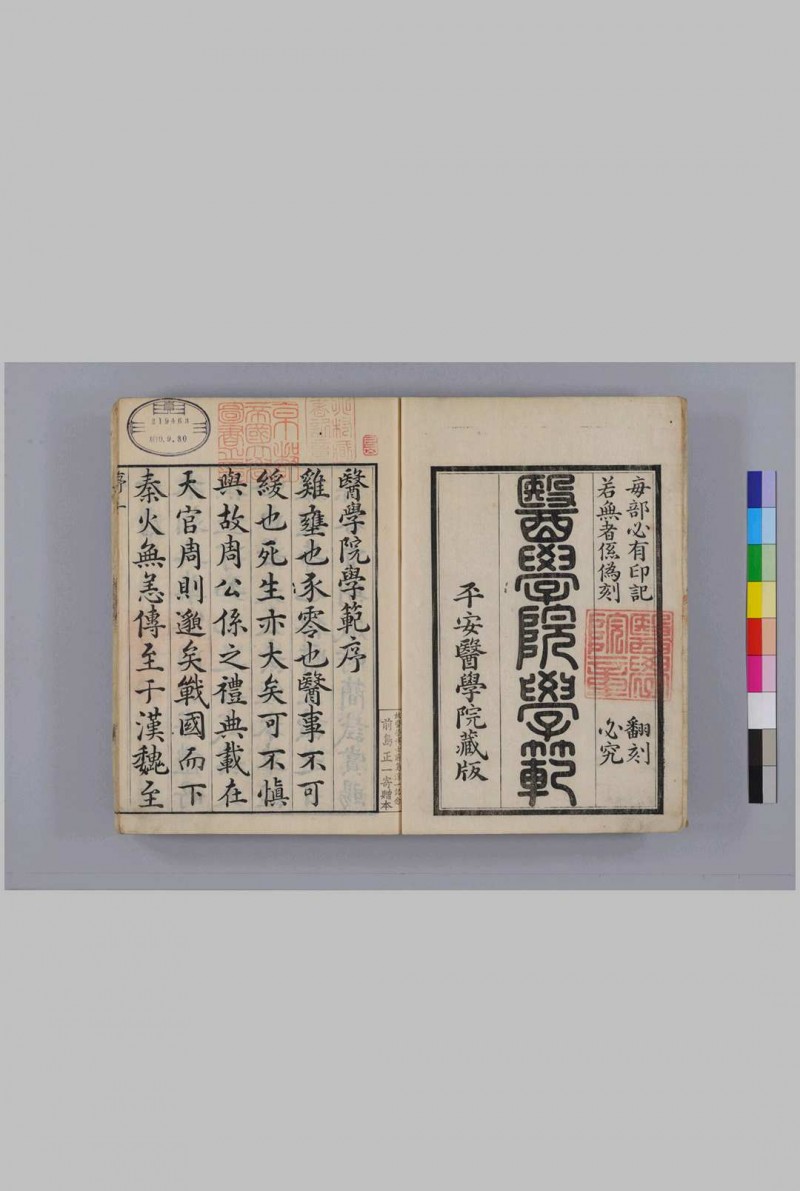 毎部必有印記
若無者係偽刻
翻刻
必究
醫學院學範
平安醫學院藏版
前島正一寄贈本
醫學院學範序
雞壅也豕零也醫事不可
緩也死生亦大矣可不愼
與故周公係之禮典載在
天官周則邈矣戰國而下
秦火無恙傳至于漢魏至
序一